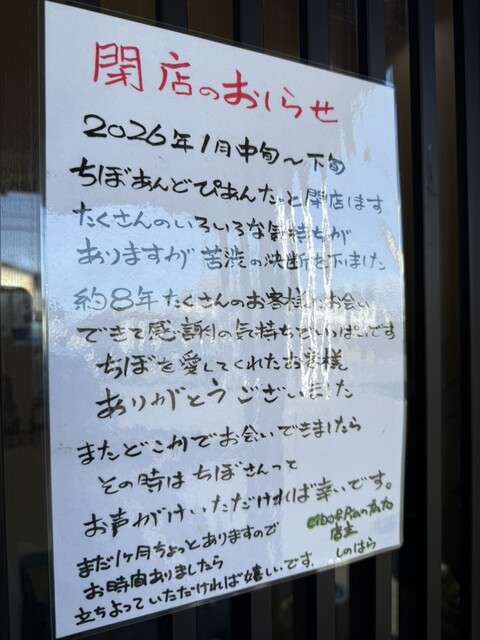 閉店のおしらせ
2026年1月中旬〜下旬
ちぼあんどぴあんたーと閉店ます
たくさんのいろいろな気持ちが
ありますが苦渋の決断を下ました
約8年たくさんのお客様にお会い
できて感謝の気持ちでいっぱいです
ちぼを愛してくれたお客様
ありがとうございました
またどこかでお会いできましたら
その時はちぼさんって
お声がけいただければ幸いです。
まだ1ヶ月ちょっとありますので
お時間ありましたら
立ちよっていただければ嬉しいです.
店主
しのはら